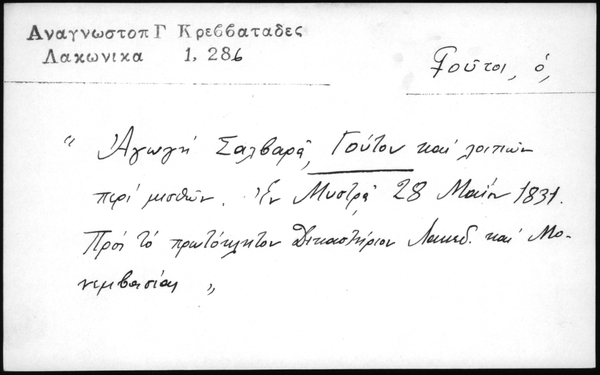 Αναγνωστοπ Γ Κρεββαταδες
Λακωνικα 1, 286
Γοῦτος, ὁ,
" Ἀγωγὴ Σαλβαρᾶ, Γούτου καὶ λοιπῶν
περὶ μισθῶν. Ἐν Μυστρᾷ 28 Μαΐου 1831.
Πρὸς τὸ πρωτόκλητον Δικαστήριον Λακεδ. καὶ Μο-
νεμβασίας "